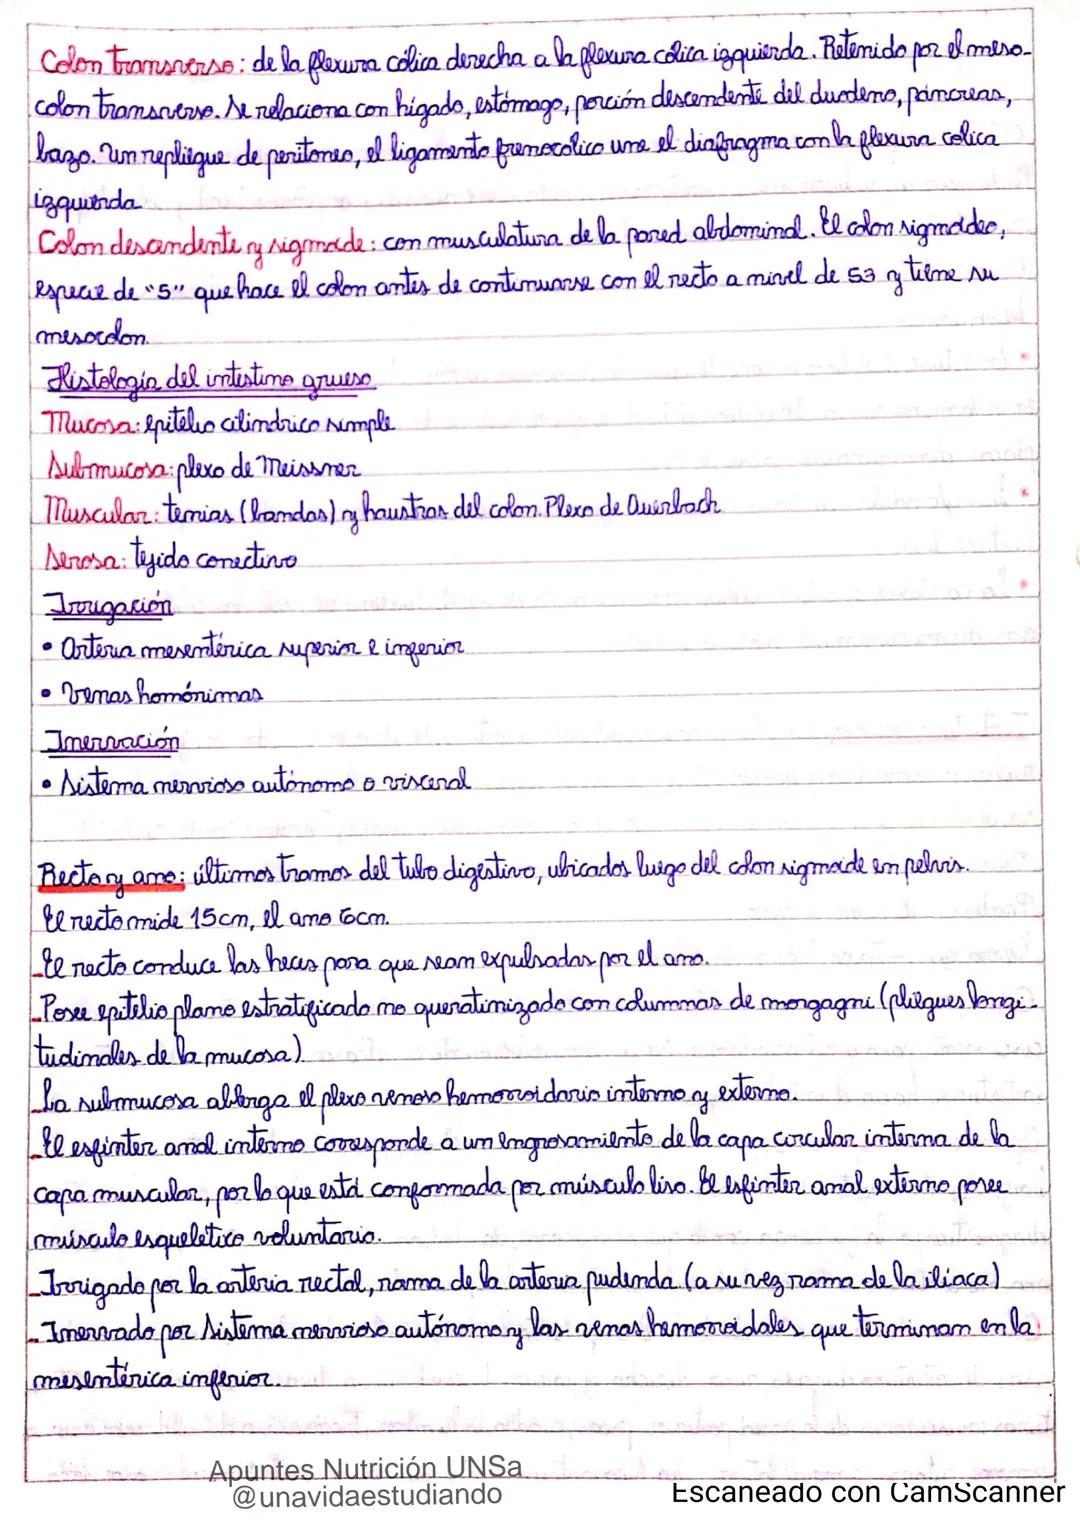 Colon transverso: de la flexura cólica derecha a la flexura cólica izquierda. Retenido por el meso-
colon transverso. Se relaciona con hígado, estómago, porción descendente del duodeno, páncreas,
bazo. Un repliegue de peritoneo, el ligamento frenocolico une el diafragma con la flexura colica
izquierda
Colon descendente y sigmoide: con musculatura de la pared abdominal. El colon sigmoideo,
especie de "S" que hace el colon antes de continuarse con el recto a nivel de S3 y tiene su
mesocolon.
Histología del intestino grueso
Mucosa: epitelio cilindrico simple
Submucosa: plexo de Meissner
Muscular: tenias (bandas) y haustras del colon. Plexo de Auerbach
Serosa: tejido conectivo
Irrigación
• Arteria mesentérica superior e inferior
• Venas homónimas
Inervación
• Sistema nervioso autónomo o visceral
Recto y ano: últimos tramos del tubo digestivo, ubicados luego del colon sigmoide en pelvis.
El recto mide 15cm, el ano 6cm.
- El recto conduce las heces para que sean expulsadas por el ano.
- Posee epitelio plano estratificado no queratinizado con columnas de morgagni (pliegues longi-
tudinales de la mucosa).
- La submucosa alberga el plexo venoso hemorroidario interno y externo.
- El esfinter anal interno corresponde a un engrosamiento de la capa circular interna de la
capa muscular, por lo que está conformada por músculo liso. El esfinter anal externo posee
músculo esquelético voluntario.
- Irrigado por la arteria rectal, rama de la arteria pudenda (a su vez rama de la iliaca)
- Inervado por Sistema nervioso autónomo y las venas hemorroidales que terminan en la
mesentérica inferior.
Apuntes Nutrición UNSa
@unavidaestudiando
Escaneado con CamScanner